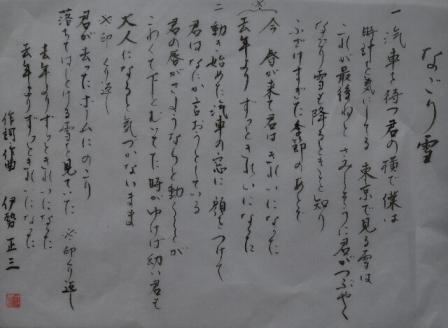 なごり雪
一 汽車を待つ君の横で僕は
時計を気にしてる 東京で見る雪は
これが最後ねと さみしそうに君がつぶやく
なごり雪も降るときを知り
ふざけすぎた季節のあとで
※
今 春が来て君は きれいになった
去年よりずっときれいになった
二 動き始めた汽車の窓に 顔をつけて
君はなにか言おうとしている
君の唇がさようならと動くことが
こわくて下をむいてた 時がゆけば幼い君も
大人になると気づかないまま
※印 くり返し
君が去ったホームにのこり
落ちてはとける雪を見ていた ※印くり返し
去年よりずっときれいになった
去年よりずっときれいになった
作詞作曲 伊勢正三